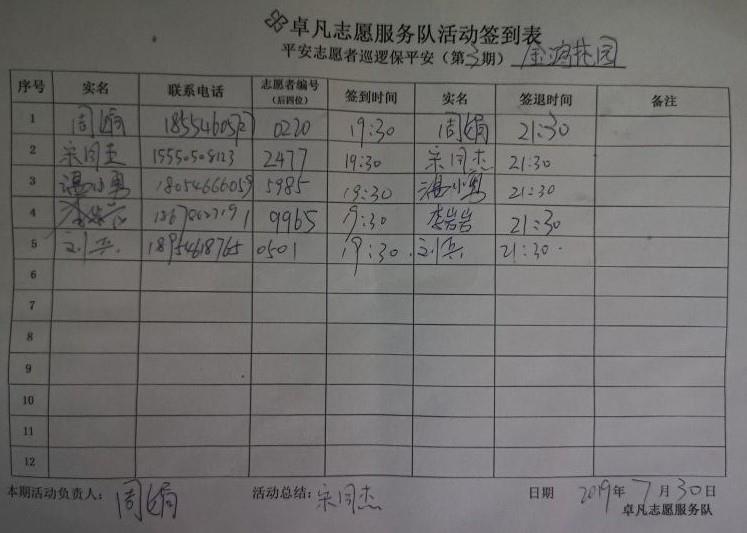 卓凡志愿服务队活动签到表
平安志愿者巡逻保平安（第3期） 金湾林园
序号 实名 联系电话 志愿者编号（后四位） 签到时间 实名 签退时间 备注
1 周 0220 19:30 周 21:30
2 宋同杰 15550508123 2477 19:30 宋同杰 21:30
3 温小勇 18054666059 5985 19:30 温小勇 21:30
4 9965 19:30 李岩岩 21:30
5 刘兵 18954618765 0501 19:30 刘兵 21:30
6
7
8
9
10
11
12
本期活动负责人：周 活动总结：宋同杰 日期 2019年7月30日
卓凡志愿服务队